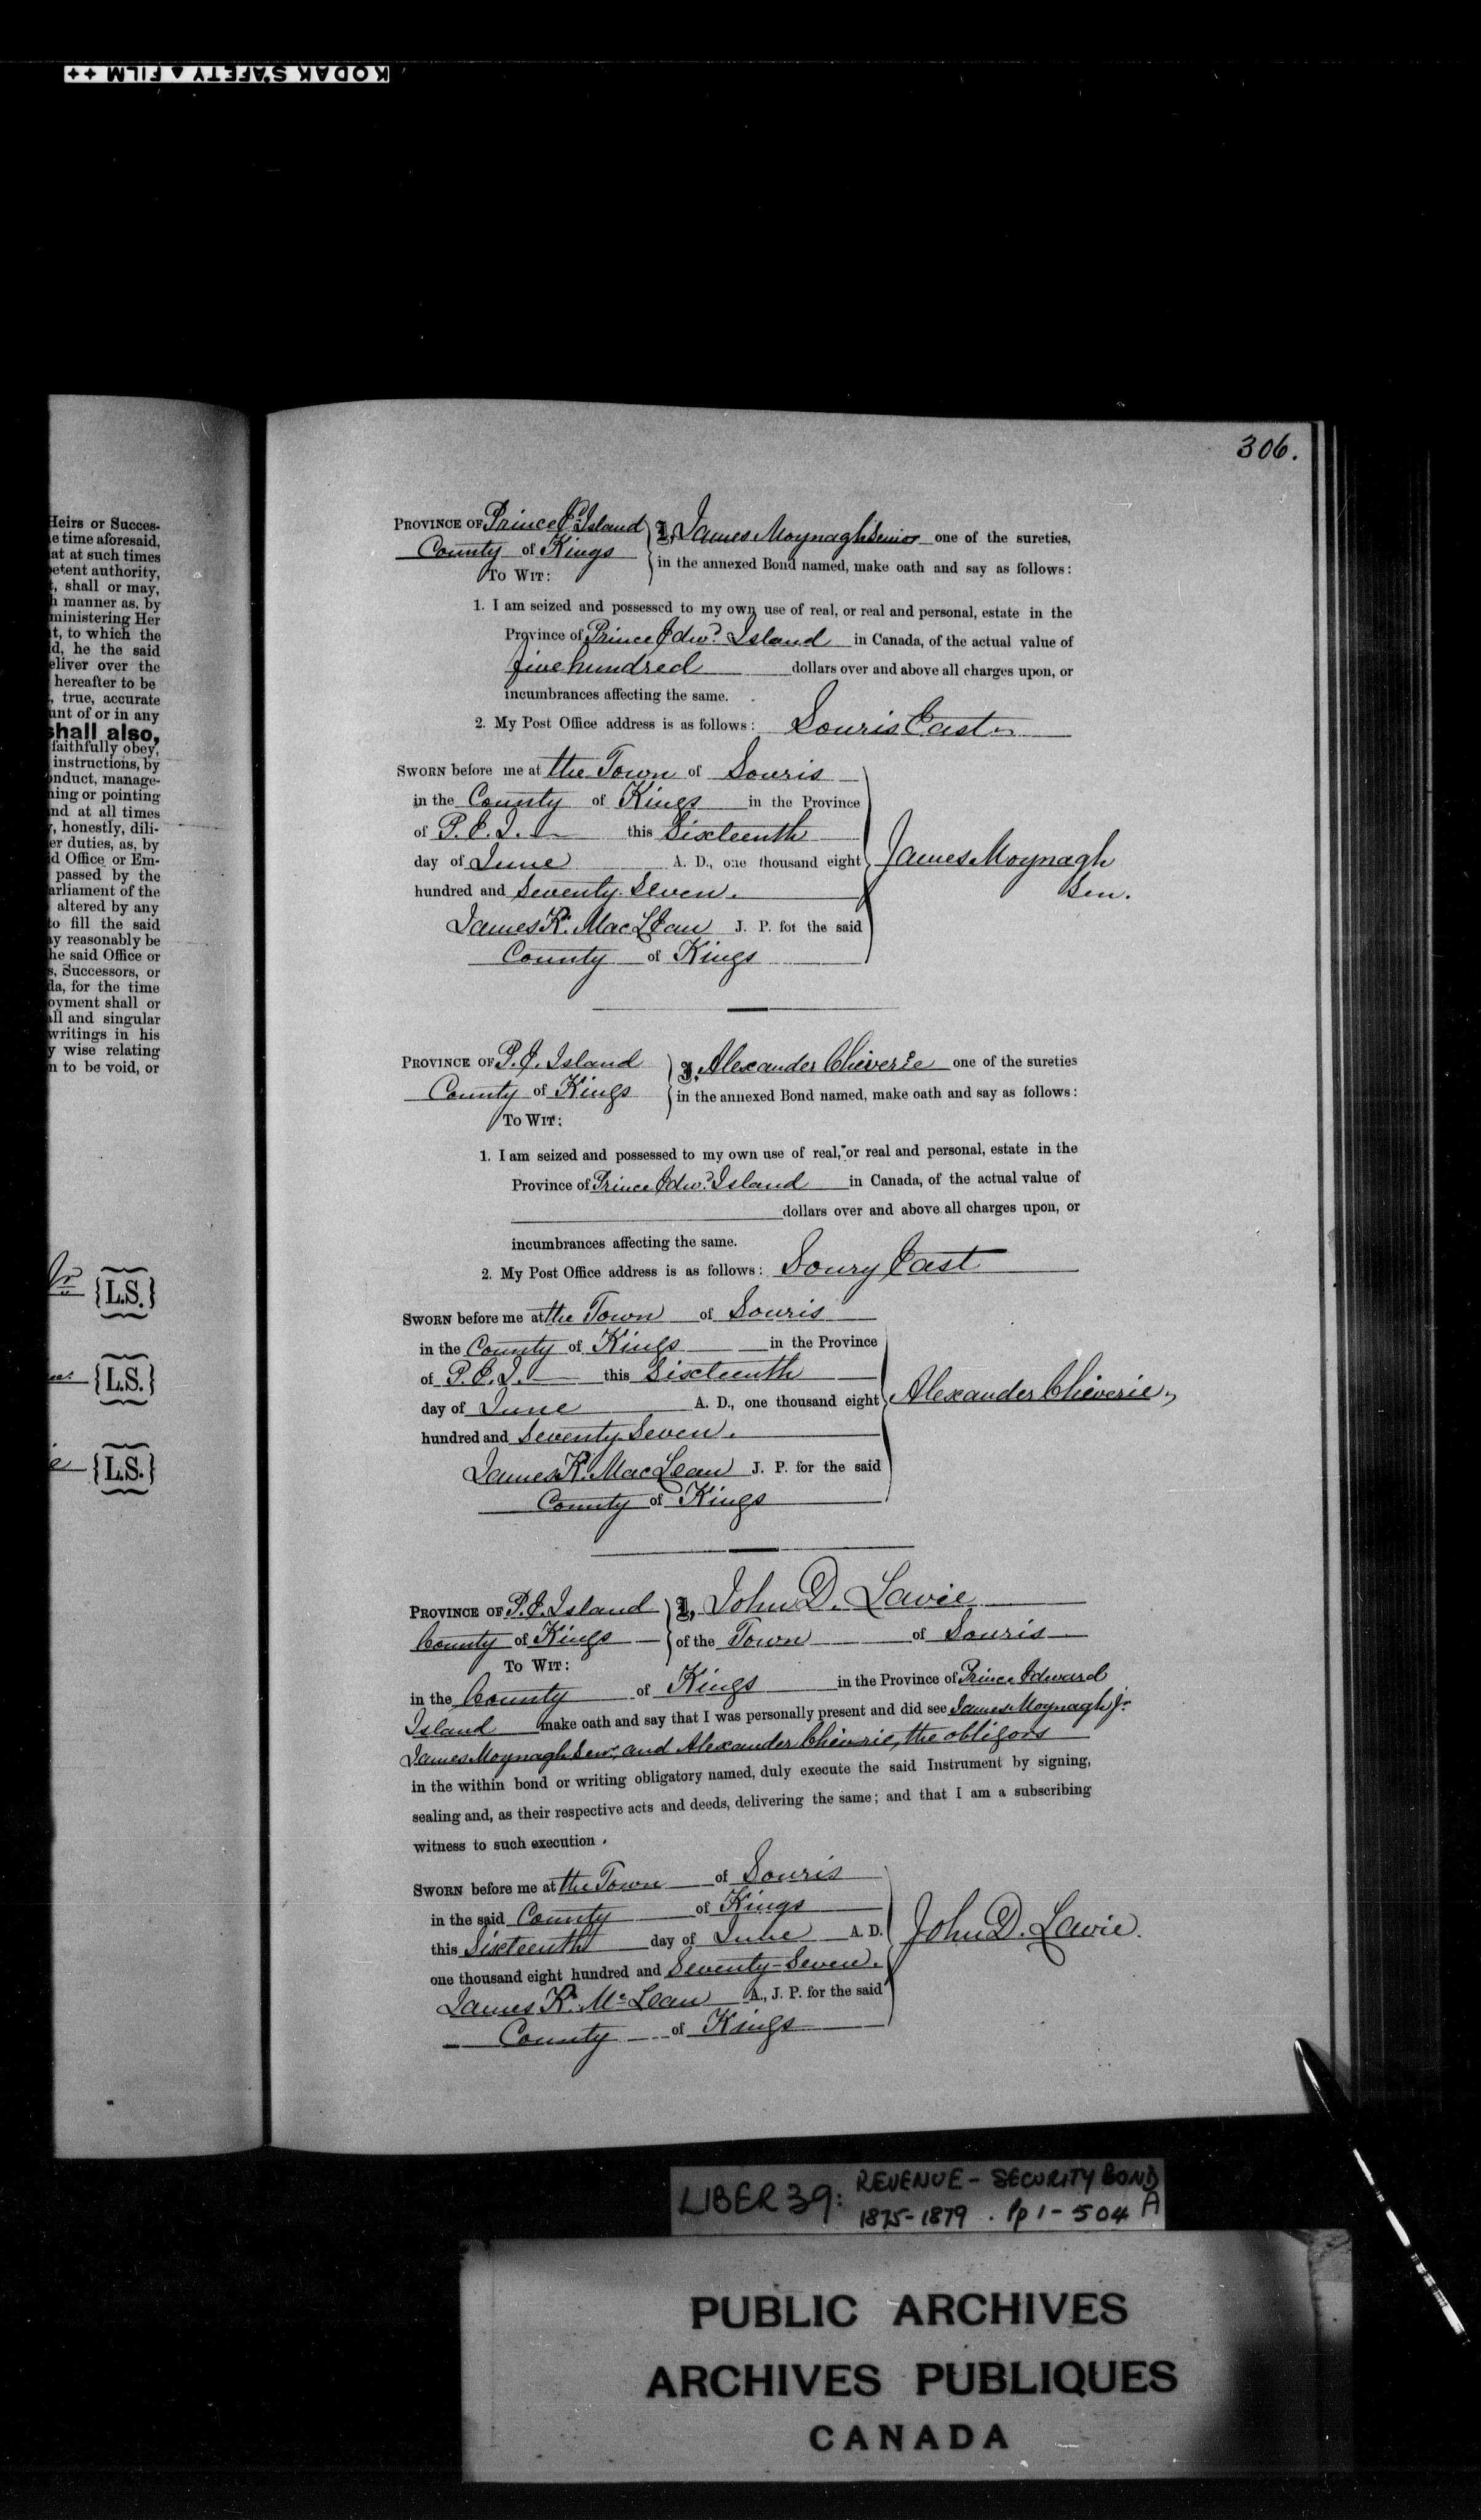 KODAK SAFETY FILM ++
306.
Heirs or Succes-
e time aforesaid,
at at such times
petent authority,
, shall or may,
h manner as, by
ministering Her
t, to which the
d, he the said
eliver over the
hereafter to be
, true, accurate
unt of or in any
shall also,
faithfully obey,
instructions, by
onduct, manage-
ning or pointing
nd at all times
, honestly, dili-
er duties, as, by
d Office or Em-
passed by the
arliament of the
altered by any
to fill the said
ay reasonably be
he said Office or
s, Successors, or
da, for the time
oyment shall or
all and singular
writings in his
y wise relating
n to be void, or
Jr {L.S.}
{L.S.}
e {L.S.}
PROVINCE OF Prince Ed Island I, James Moynagh Senior one of the sureties,
County of Kings in the annexed Bond named, make oath and say as follows:
TO WIT:
1. I am seized and possessed to my own use of real, or real and personal, estate in the
Province of Prince Edwd Island in Canada, of the actual value of
five hundred dollars over and above all charges upon, or
incumbrances affecting the same.
2. My Post Office address is as follows: Souris East
SWORN before me at the Town of Souris
in the County of Kings in the Province
of P.E.I. this Sixteenth
day of June A. D., one thousand eight James Moynagh
hundred and Seventy Seven. Sen.
James R. MacLean J. P. fot the said
County of Kings
PROVINCE OF P.E. Island I, Alexander Cheverie one of the sureties
County of Kings in the annexed Bond named, make oath and say as follows:
TO WIT:
1. I am seized and possessed to my own use of real, or real and personal, estate in the
Province of Prince Edwd Island in Canada, of the actual value of
dollars over and above all charges upon, or
incumbrances affecting the same.
2. My Post Office address is as follows: Soury East
SWORN before me at the Town of Souris
in the County of Kings in the Province
of P.E.I. this Sixteenth
day of June A. D., one thousand eight Alexander Cheverie,
hundred and Seventy Seven.
James R. MacLean J. P. for the said
County of Kings
PROVINCE OF P.E. Island I, John D. Lavie
County of Kings of the Town of Souris
TO WIT:
in the County of Kings in the Province of Prince Edward
Island make oath and say that I was personally present and did see James Moynagh Jr.
James Moynagh Senr, and Alexander Cheverie, the obligors
in the within bond or writing obligatory named, duly execute the said Instrument by signing,
sealing and, as their respective acts and deeds, delivering the same; and that I am a subscribing
witness to such execution.
SWORN before me at the Town of Souris
in the said County of Kings
this Sixteenth day of June A. D. John D. Lavie.
one thousand eight hundred and Seventy-Seven.
James R. McLean A., J. P. for the said
County of Kings
LIBER 39: REVENUE - SECURITY BOND
1875-1879. Pp 1-504 A
PUBLIC ARCHIVES
ARCHIVES PUBLIQUES
CANADA